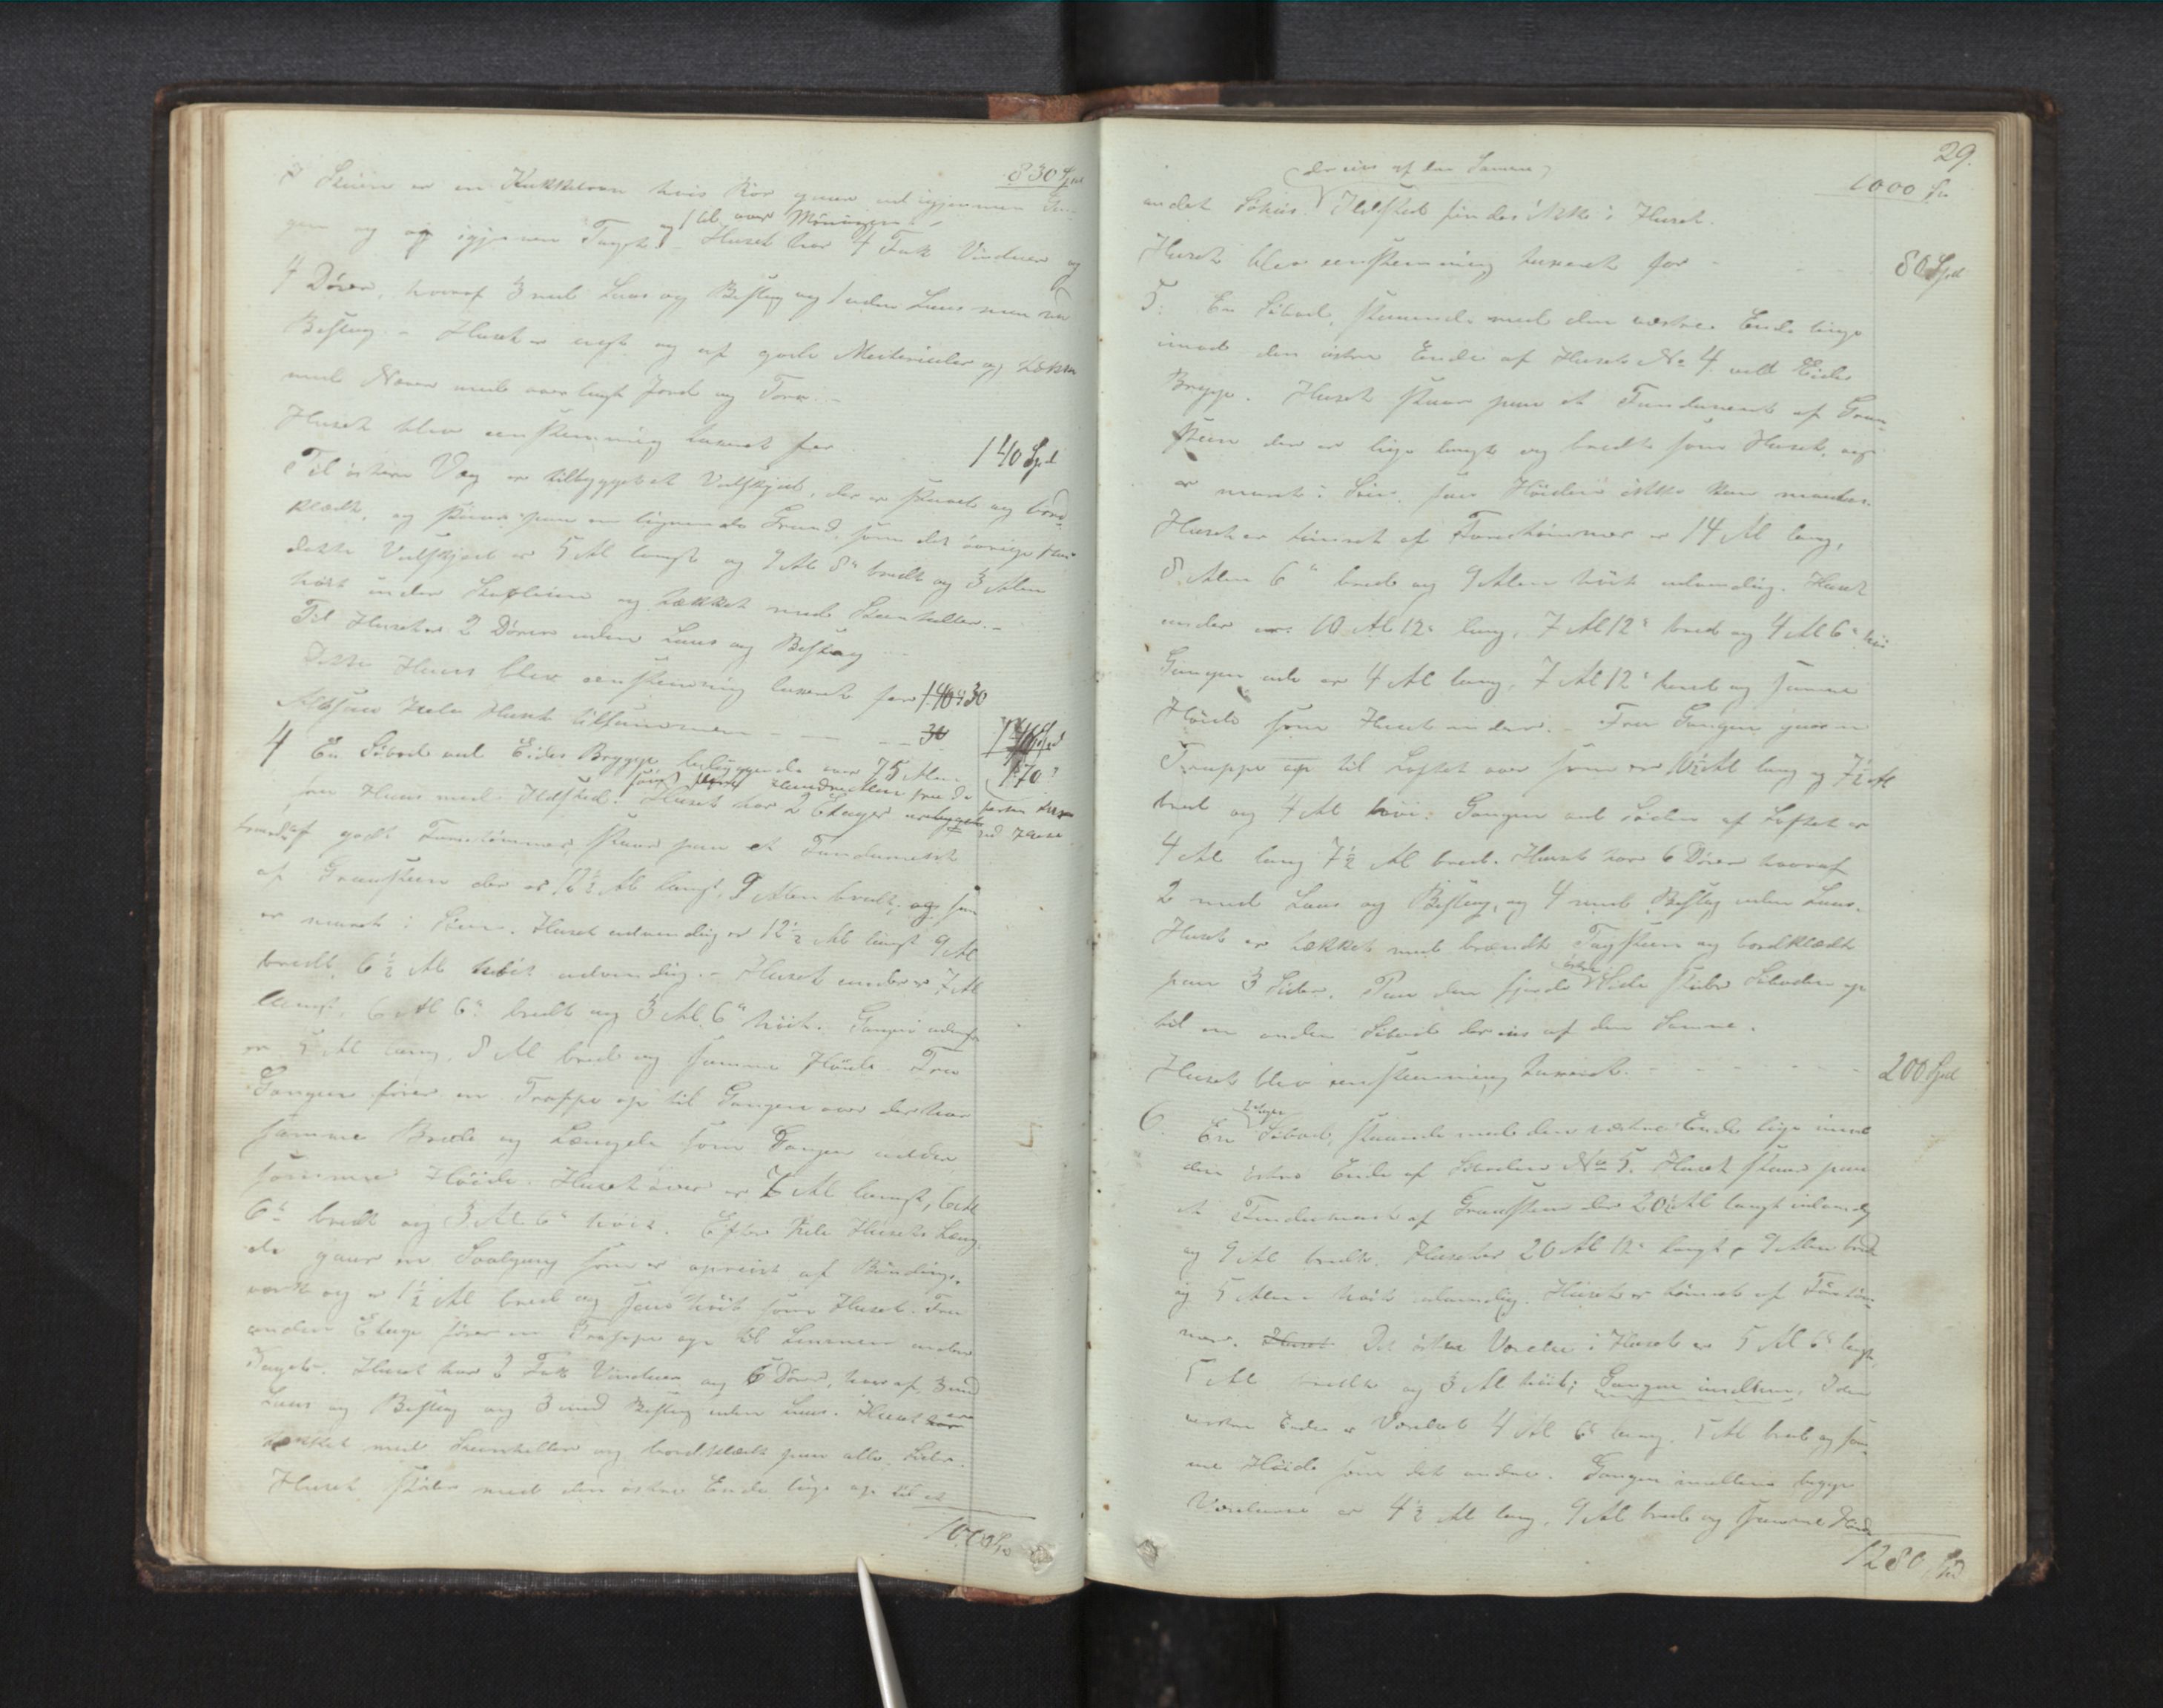 830 Spd
I Stuen er en Kakkelovn hvis Rör gaaer ud igjennem Gan-
gen og op igjennem Taget og 1 Al. over Möningen. – Huset har 4 Fak Vinduer og
4 Dörer, hvoraf 3 med Laas og Beslag og 1 uden Laas men med
Beslag. – Huset er nyt og af gode Materialer og tækket
med Næver med overlagt Jord og Torv. –
Huset blev eenstemmig taxeret for 140 Spd
Til östere Væg er tilbygget et Vedskjul, der er staaet og bord-
klædt, og staaer paa en lignende Grund, som det övrige Huus
dette Vedskjul er 5 Al langt og 9 Al 8" bredt og 3 Alen
höit under and tækket med Steenheller. –
Til Huset er 2 Dörer uden Laas og Beslag
Dette Huus blev eenstemmig taxeret for 30
Altsaa hele Huset tilsammen – – – 170
4 En Söbod ved Eides Brygge beliggende over 75 Alen
fra Huus med Ildsted. Huset har 2 Etager er bygget
af godt Furutömmer, staaer paa et Fundament
af Graasteen der er 12½ Al langt, 9 Alen bredt, og som
er muret i Söen. Huset udvendig er 12½ Al langt 9 Al
bredt, 6½ Al höit udvendig. – Huset under er 7 Al
langt, 6 Al 6" bredt og 3 Al 6" höit. Gangen udenfor
er 5 Al lang, 8 Al bred og samme Höide. Fra
Gangen förer en Trappe op til Gangen over der har
samme Brede og Længde som Gangen under
samme Höide. Huset över er 7 Al langt, 6 Al
6" bredt og 3 Al 6" höit. Efter hele Husets Læng-
de gaaer en Svalgang som er opreist af Bindings-
værk og er 1½ Al bred og saa höit som Huset. Fra
anden Etage förer en Trappe op til Lemmen under
Taget. Huset har 2 Fak Vinduer og 6 Dörer, hvoraf 3 med
Laas og Beslag og 3 med Beslag uden Laas. Huset er
tækket med Steenheller og bordklædt paa alle Sider.
Huset stöder med den östre Ende lige op til et
1000 Spd
29.
1000 Spd
der eies af den Samme
andet Söhuus. Ildsted findes ikke i Huset.
Huset blev eenstemmig taxeret for – – – 80 Spd
5. En Söbod, staaende med den vestre Ende lige
imod den östre Ende af Huset No 4 ved Eides
Brygge. Huset staaer paa et Fundament af Graa-
steen der er lige langt og bredt som Huset, og
er muret i Söen, saa Höiden ikke kan maales.
Huset er tömret af Furutömmer er 14 Al lang,
8 Alen 6" bred og 9 Alen höit udvendig. Huset
under er 10 Al 12" lang, 7 Al 12" bred og 4 Al 6" höi
Gangen ude er 4 Al lang, 7 Al 12" bred og samme
Höide som Huset under. – Fra Gangen gaaer en
Trappe op til Loftet over som er 10½ Al lang og 7½ Al
bred og 4 Al höi. Gangen ved Siden af Loftet er
4 Al lang 7½ Al bred. Huset har 6 Dörer hvoraf
2 med Laas og Beslag, og 4 med Beslag uden Laas.
Huset er tækket med brændte Tagsteen og bordklædt
paa 3 Sider. Paa den fjerde östre Side stöder Söboden op
til en anden Söbod der eies af den Samme.
Huset blev eenstemmig taxeret – – – – – 200 Spd
6. En 2 Etages Söbod, staaende med den vestre Ende lige imod
den östre Ende af Söboden No 5. Huset staaer paa
et Fundament af Graasteen der 20½ Al langt udvendig
og 9 Al bredt. Huset er 20 Al 12" langt, 9 Alen bred
og 5 Alen höit udvendig. Huset er tömret af Furutöm-
mer. Huset Det östre Værelse i Huset er 5 Al 6" langt,
5 Al bredt og 3 Al höit; Gangen imellem, I den
vestre Ende er Værelset 4 Al 6" lang, 5 Al bred og sam-
me Höide som det andre. Gangen imellem begge
Værelserne er 4½ Al lang, 9 Al bred og samme Höide
1280 Spd